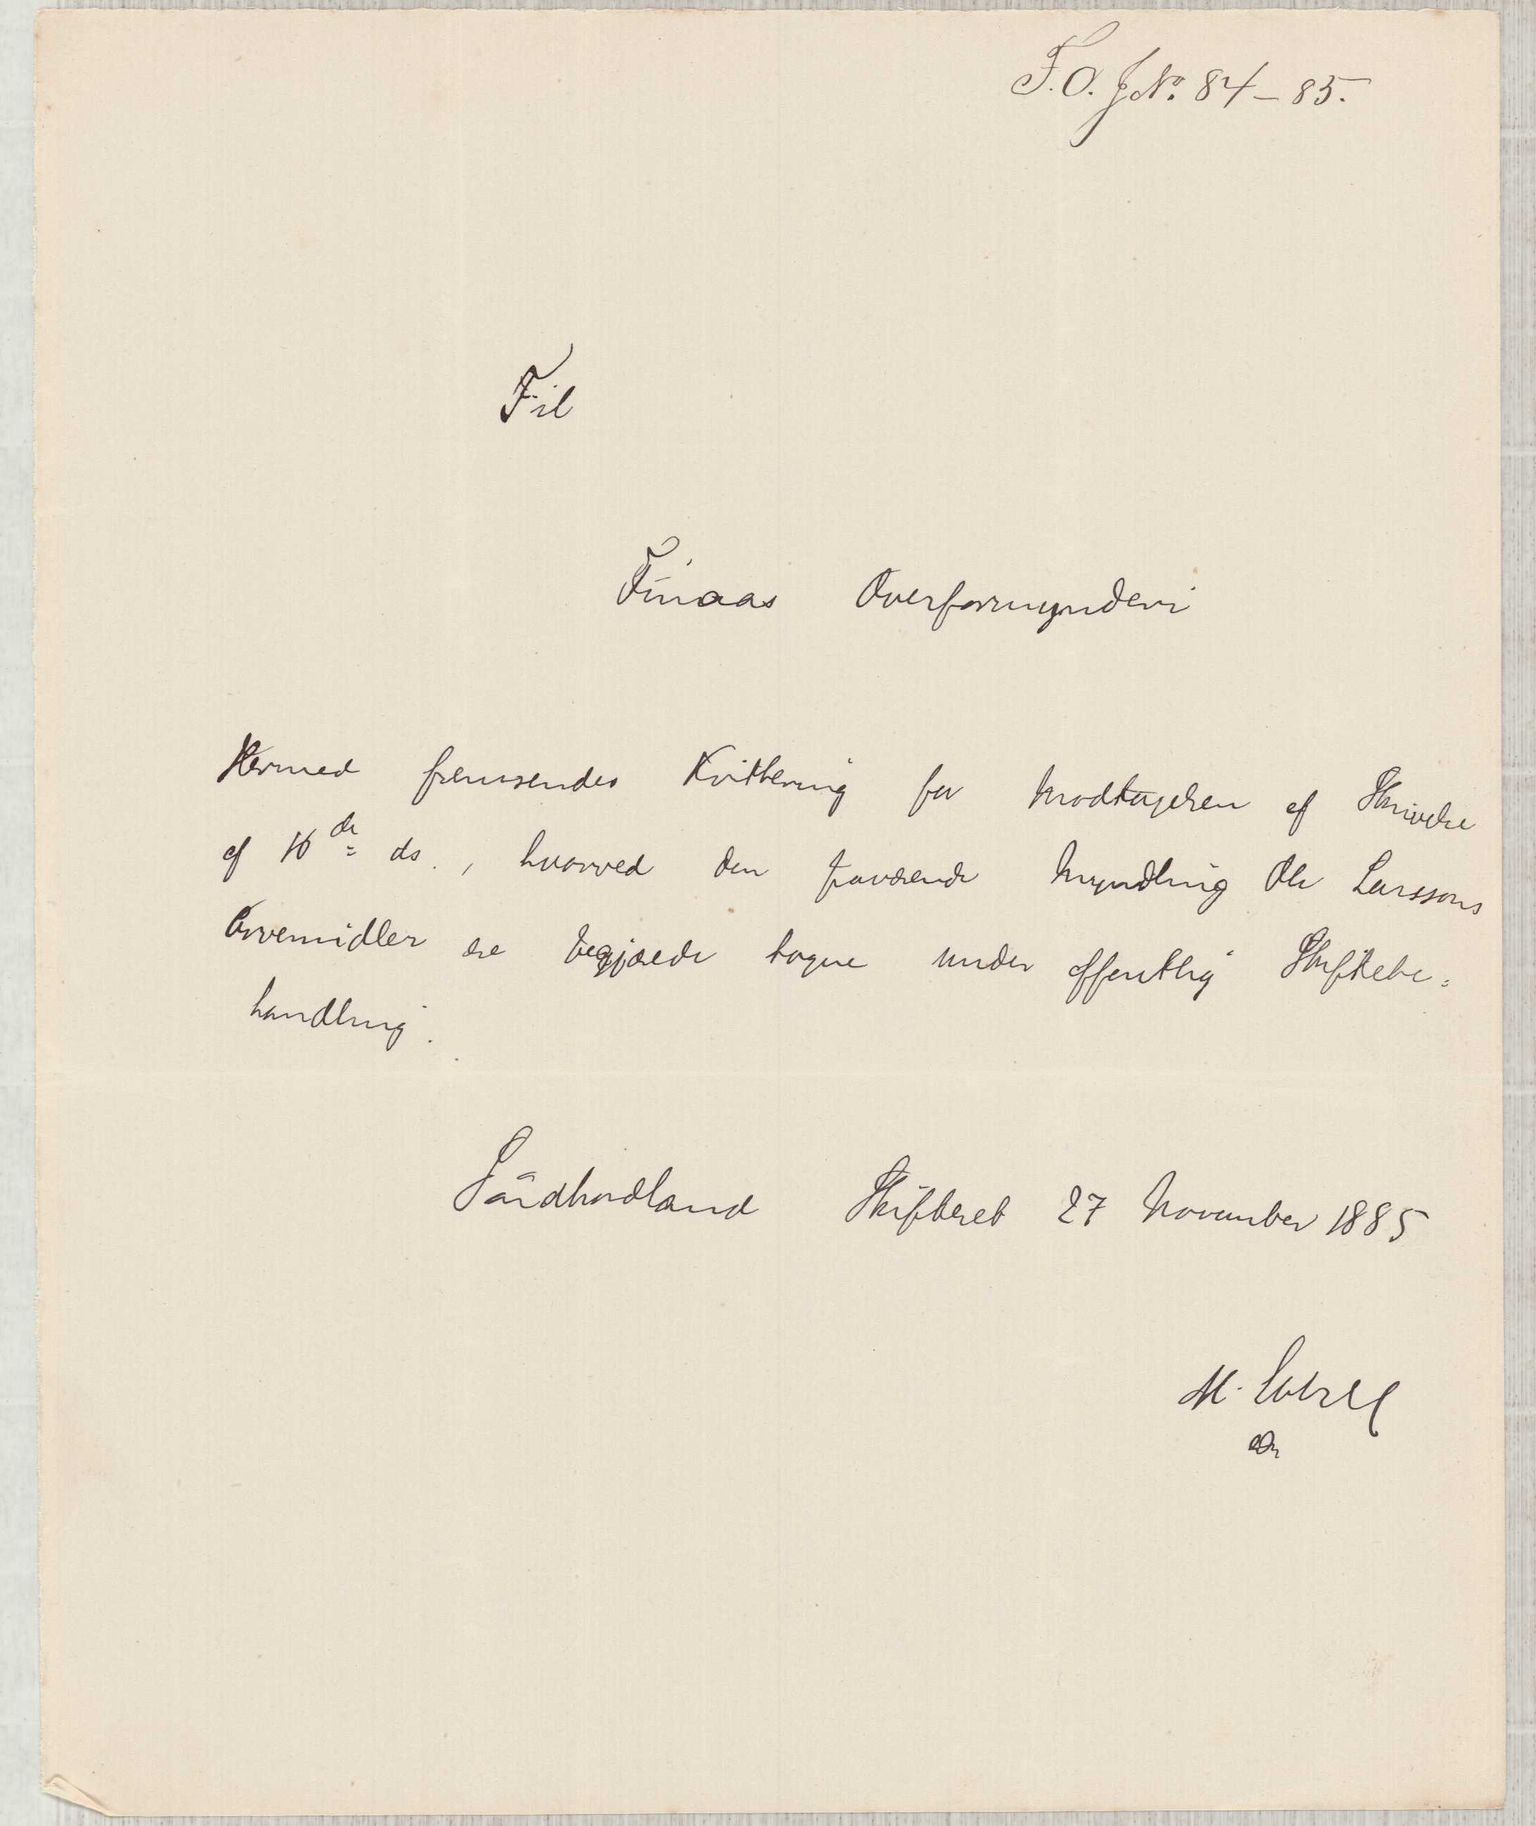 F.O. J No. 84-85.
Til
Finaas Overformynderi
Hermed fremsendes Kvittering for Modtagelsen af Skrivelse
af 16de ds., hvorved den fraværende Myndling Ole Larssons
Arvemidler ere begjærede tagne under offentlig Skiftebe=
handling.
Søndhordland Skifteret 27 November 1885
M.